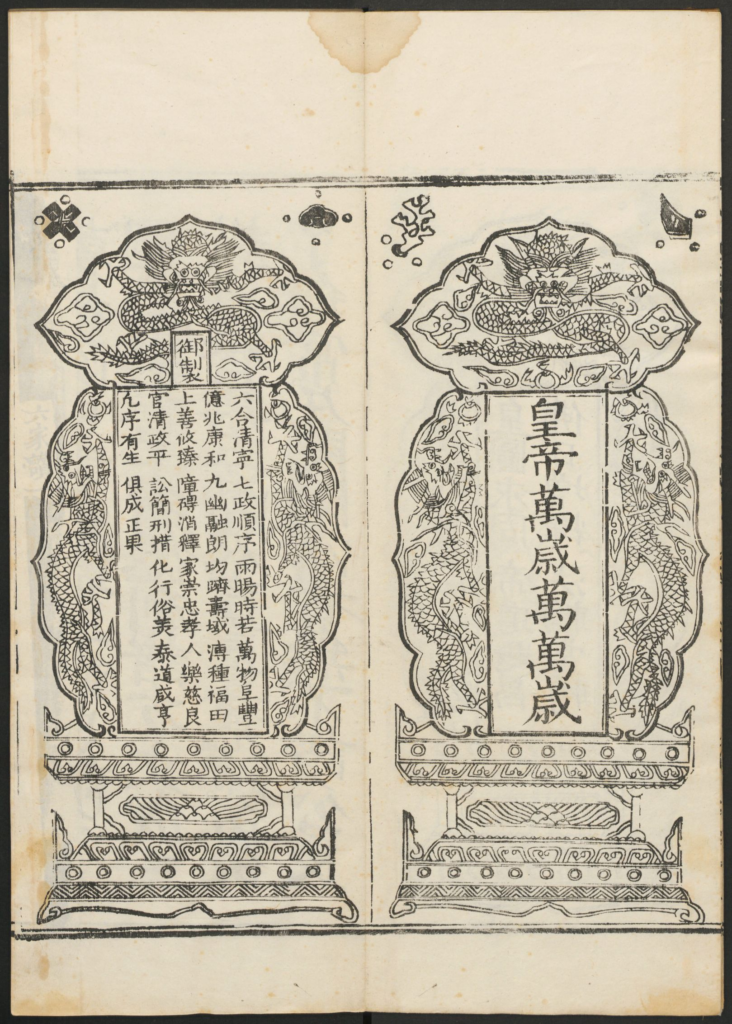 皇帝萬歲萬萬歲
御製
六合清寧 七政順序 雨暘時若 萬物阜豐
億兆康和 九幽融朗 均躋壽域 溥種福田
上善攸臻 障碍消釋 家崇忠孝 人樂慈良
官清政平 訟簡刑措 化行俗美 泰道咸亨
凡序有生 俱成正果